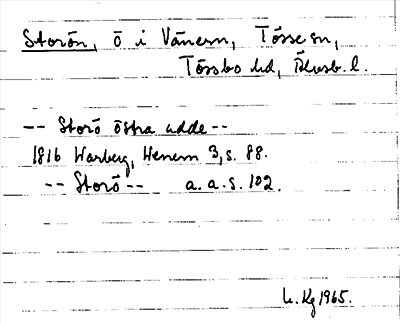 Storön, ö i Vänern, Tösse sn,
Tössbo hd, Älvsb. l.
-- Storö östra udde --
1816 Warberg, Wenern 3, s. 88.
-- Storö -- a.a. s. 102.
Kg 1965.